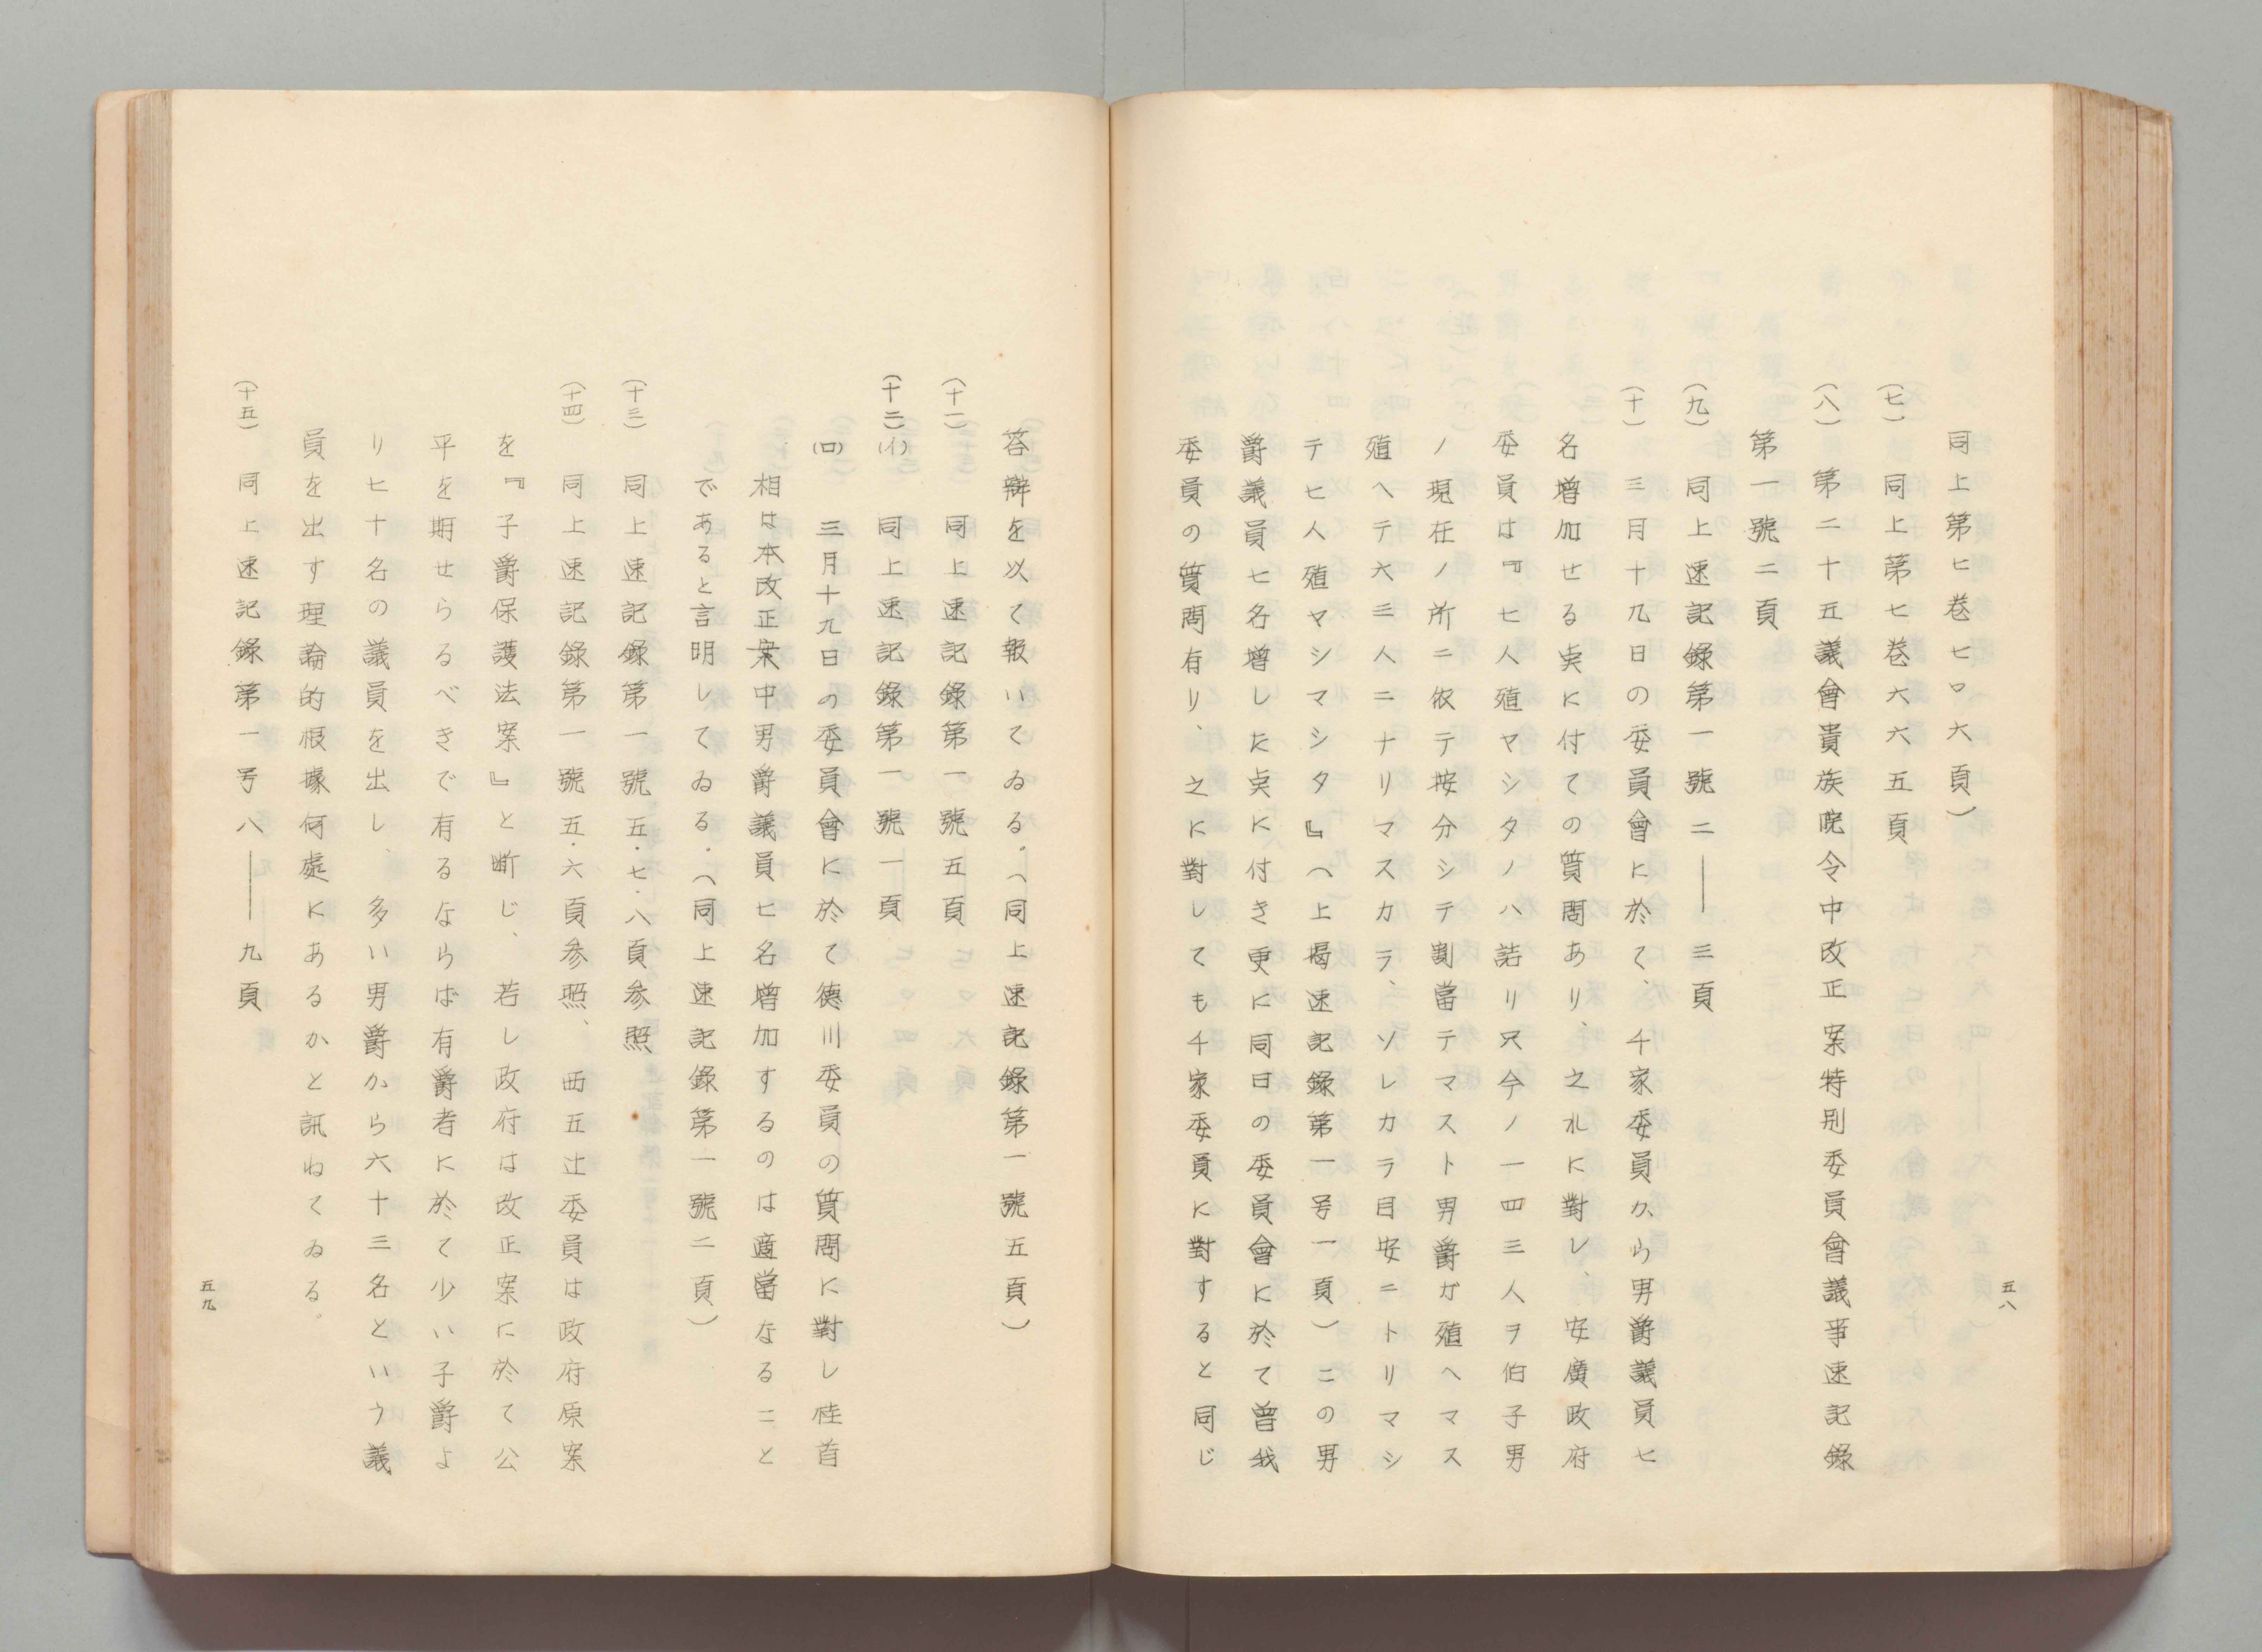 同上第七巻七〇六頁）
（七）　同上第七巻六六五頁
（八）　第二十五議會貴族院令中改正案特別委員會議事速記錄
第一號二頁
（九）　同上速記錄第一號二――三頁
（十）　三月十九日の委員會に於て、千家委員から男爵議員七
名增加せる点に付ての質問あり、之れに對し、安廣政府
委員は『七人殖ヤシタノハ詰リ只今ノ一四三人ヲ伯子男
ノ現在ノ所ニ依テ按分シテ割當テマスト男爵ガ殖ヘマス
殖ヘテ六三人ニナリマスカラ、ソレカラ目安ニトリマシ
テ七人殖マシマシタ』（上揭速記錄第一号一頁）この男
爵議員七名增した点に付き更に同日の委員會に於て曽我
委員の質問有り、之に對しても千家委員に對すると同じ
五八
答辯を以て報いてゐる。（同上速記錄第一號五頁）
（十一）　同上速記錄第一號五頁
（十二）（イ）　同上速記錄第一號一頁
（ロ）　三月十九日の委員會に於て德川委員の質問に對し桂首
相は本改正案中男爵議員七名增加するのは適當なること
であると言明してゐる．（同上速記錄第一號二頁）
（十三）　同上速記錄第一號五．七．八頁参照
（十四）　同上速記錄第一號五．六頁参照、西五辻委員は政府原案
を『子爵保護法案』と断じ、若し政府は改正案に於て公
平を期せらるべきで有るならば有爵者に於て少い子爵よ
り七十名の議員を出し、多い男爵から六十三名という議
員を出す理論的根據何處にあるかと訊ねてゐる。
（十五）　同上速記錄第一号八――九頁
五九